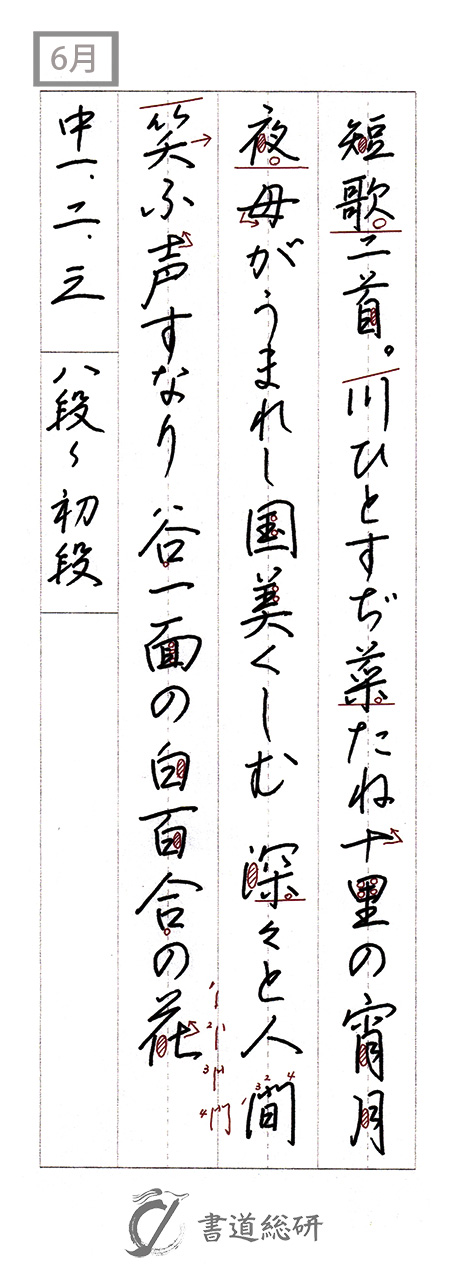 6月
短歌二首。川ひとすぢ菜たね十里の宵月
夜母がうまれし国美くしむ 深々と人間
笑ふ声すなり 谷一面の白百合の花
中一、二、三 八段〜初段
書道総研